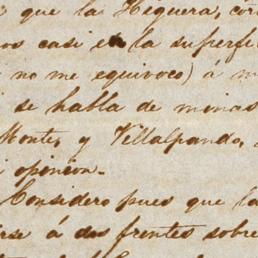 que la Higuera, cor
os casi en la superfi
no me equivoco) á m
se habla de minas
Monte, y Villalpando,
opinion.
Considero pues que la
rse á dos frentes sobre